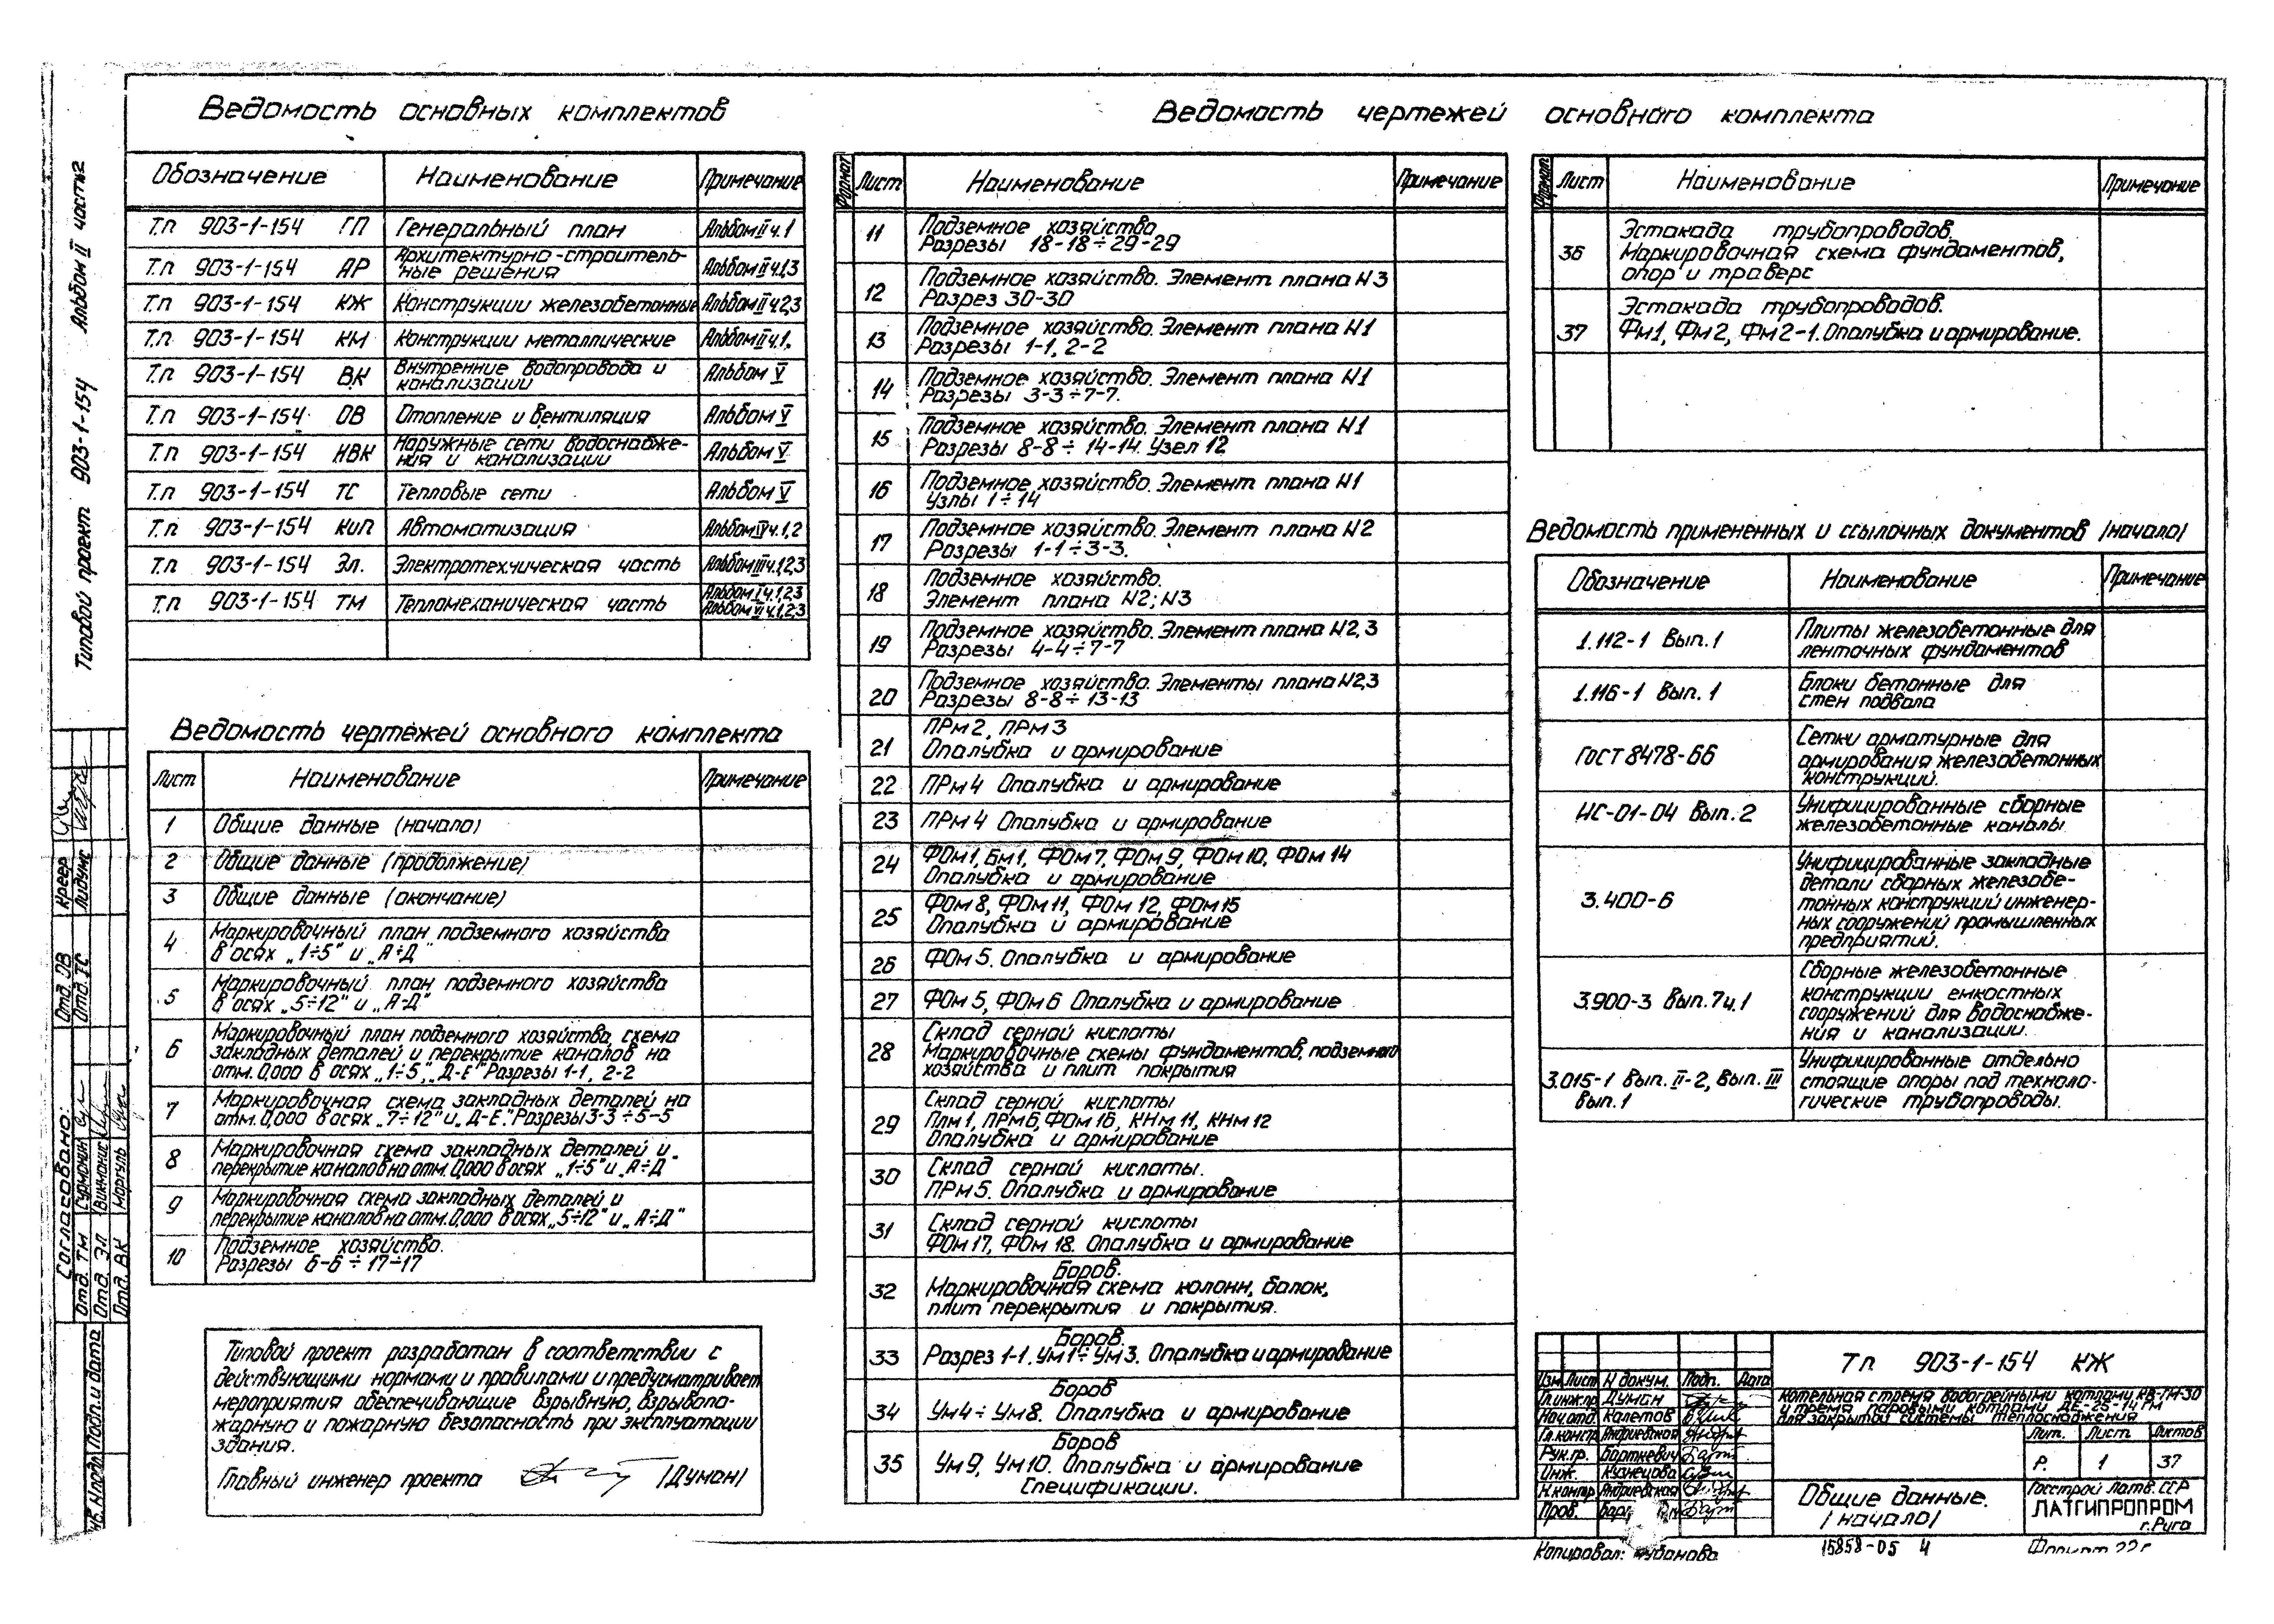 Типовой проект 903-1-154 Альбом II часть 2
Ведомость основных комплектов
Обозначение Наименование Примечание
Т.п 903-1-154 ГП Генеральный план Альбом II ч.1
Т.п 903-1-154 АР Архитектурно-строитель-
ные решения Альбом II ч.1,3
Т.п 903-1-154 КЖ Конструкции железобетонные Альбом II ч.2,3
Т.п 903-1-154 КМ Конструкции металлические Альбом II ч.1,
Т.п 903-1-154 ВК Внутренние водопровода и
канализации Альбом V
Т.п 903-1-154 ОВ Отопление и вентиляция Альбом V
Т.п 903-1-154 НВК Наружные сети водоснабже-
ния и канализации Альбом V
Т.п 903-1-154 ТС Тепловые сети Альбом V
Т.п 903-1-154 КиП Автоматизация Альбом IV ч.1,2
Т.п 903-1-154 Эл. Электротехническая часть Альбом III ч.1,2,3
Т.п 903-1-154 ТМ Тепломеханическая часть Альбом I ч.1,2,3
Альбом VI ч.1,2,3
Ведомость чертежей основного комплекта
Лист Наименование Примечание
1 Общие данные (начало)
2 Общие данные (продолжение)
3 Общие данные (окончание)
4 Маркировочный план подземного хозяйства
в осях „1÷5" и „А÷Д"
5 Маркировочный план подземного хозяйства
в осях „5÷12" и „А-Д"
6 Маркировочный план подземного хозяйства, схема
закладных деталей и перекрытие каналов на
отм. 0,000 в осях „1÷5", „Д-Е" Разрезы 1-1, 2-2
7 Маркировочная схема закладных деталей на
отм. 0,000 в осях „7÷12" и „Д-Е". Разрезы 3-3÷5-5
8 Маркировочная схема закладных деталей и
перекрытие каналов на отм. 0,000 в осях „1÷5" и „А÷Д"
9 Маркировочная схема закладных деталей и
перекрытие каналов на отм. 0,000 в осях „5÷12" и „А÷Д"
10 Подземное хозяйство.
Разрезы 6-6÷17-17
Типовой проект разработан в соответствии с
действующими нормами и правилами и предусматривает
мероприятия обеспечивающие взрывную, взрывопо-
жарную и пожарную безопасность при эксплуатации
здания.
Главный инженер проекта /Думан/
Ведомость чертежей основного комплекта
Формат Лист Наименование Примечание
11 Подземное хозяйство
Разрезы 18-18÷29-29
12 Подземное хозяйство. Элемент плана N3
Разрез 30-30
13 Подземное хозяйство. Элемент плана N1
Разрезы 1-1, 2-2
14 Подземное хозяйство. Элемент плана N1
Разрезы 3-3÷7-7.
15 Подземное хозяйство. Элемент плана N1
Разрезы 8-8÷14-14. Узел 12
16 Подземное хозяйство. Элемент плана N1
Узлы 1÷14
17 Подземное хозяйство. Элемент плана N2
Разрезы 1-1÷3-3.
18 Подземное хозяйство.
Элемент плана N2; N3
19 Подземное хозяйство. Элемент плана N2,3
Разрезы 4-4÷7-7
20 Подземное хозяйство. Элементы плана N2,3
Разрезы 8-8÷13-13
21 ПРм2, ПРм3
Опалубка и армирование
22 ПРм4 Опалубка и армирование
23 ПРм4 Опалубка и армирование
24 ФОм1, Бм1, ФОм7, ФОм9, ФОм10, ФОм14
Опалубка и армирование
25 ФОм8, ФОм11, ФОм12, ФОм15
Опалубка и армирование
26 ФОм5. Опалубка и армирование
27 ФОм5, ФОм6 Опалубка и армирование
28 Склад серной кислоты
Маркировочные схемы фундаментов, подземного
хозяйства и плит покрытия
29 Склад серной кислоты
Плм1, ПРм6, ФОм16, КНм11, КНм12
Опалубка и армирование
30 Склад серной кислоты.
ПРм5. Опалубка и армирование
31 Склад серной кислоты
ФОм17, ФОм18. Опалубка и армирование
32 Боров.
Маркировочная схема колонн, балок,
плит перекрытия и покрытия.
33 Боров.
Разрез 1-1. Ум1÷Ум3. Опалубка и армирование
34 Боров
Ум4÷Ум8. Опалубка и армирование
35 Боров
Ум9, Ум10. Опалубка и армирование
Спецификации.
Формат Лист Наименование Примечание
36 Эстакада трубопроводов,
Маркировочная схема фундаментов,
опор и траверс
37 Эстакада трубопроводов.
Фм1, Фм2, Фм2-1. Опалубка и армирование.
Ведомость примененных и ссылочных документов /начало/
Обозначение Наименование Примечание
1.112-1 Вып.1 Плиты железобетонные для
ленточных фундаментов
1.116-1 Вып.1 Блоки бетонные для
стен подвала
ГОСТ 8478-66 Сетки арматурные для
армирования железобетонных
конструкций.
ИС-01-04 Вып.2 Унифицированные сборные
железобетонные каналы
3.400-6 Унифицированные закладные
детали сборных железобе-
тонных конструкций инженер-
ных сооружений промышленных
предприятий.
3.900-3 Вып.7ч.1 Сборные железобетонные
конструкции емкостных
сооружений для водоснабже-
ния и канализации.
3.015-1 Вып. II-2, Вып. III
вып.1 Унифицированные отдельно
стоящие опоры под техноло-
гические трубопроводы.
Согласовано:
Отд. ТМ Сурмонин
Отд. ЭЛ
Отд. ВК Моргуль
Отд. ОВ Креер
Отд. ТС Лидумс
Инв. N подл Подп. и дата
Тп 903-1-154 КЖ
Котельная с тремя водогрейными котлами КВ-ГМ-30
и тремя паровыми котлами ДЕ-25-14ГМ
для закрытой системы теплоснабжения
Изм Лист N докум. Подп. Дата
Гл.инж.пр Думан
Нач.отд. Калетов
Гл.констр Андриевская
Рук.гр. Барткевич
Инж. Кузнецова
Н.контр Андриевская
Пров.
Лит. Лист Листов
Р. 1 37
Общие данные.
/начало/
Госстрой Латв. ССР
ЛАТГИПРОПРОМ
г. Рига
Копировал:
15858-05 4
Формат 22г